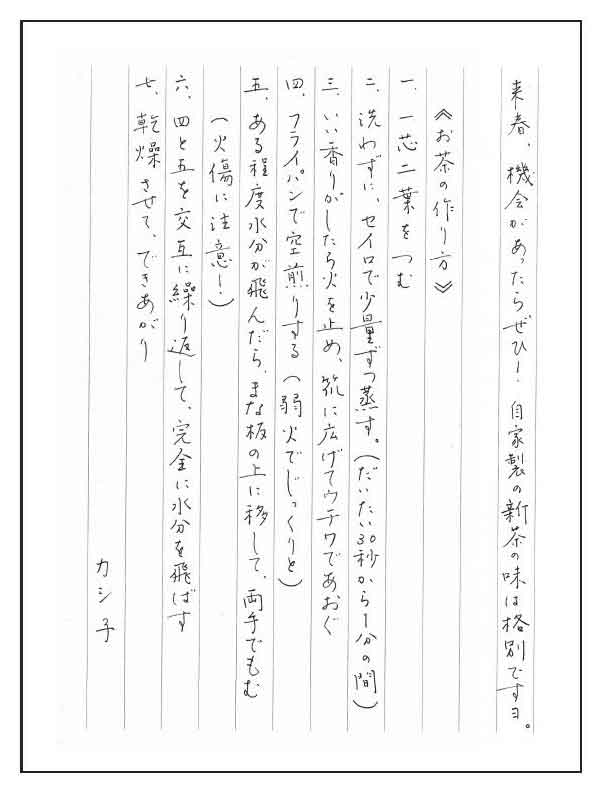 来春、機会があったらぜひ！ 自家製の新茶の味は格別ですヨ。
《お茶の作り方》
一、一芯二葉をつむ
二、洗わずに、セイロで少量ずつ蒸す。(だいたい30秒から1分の間)
三、いい香りがしたら火を止め、笊に広げてウチワであおぐ
四、フライパンで空煎りする(弱火でじっくりと)
五、ある程度水分が飛んだら、まな板の上に移して、両手でもむ
(火傷に注意！)
六、四と五を交互に繰り返して、完全に水分を飛ばす
七、乾燥させて、できあがり
カシ子